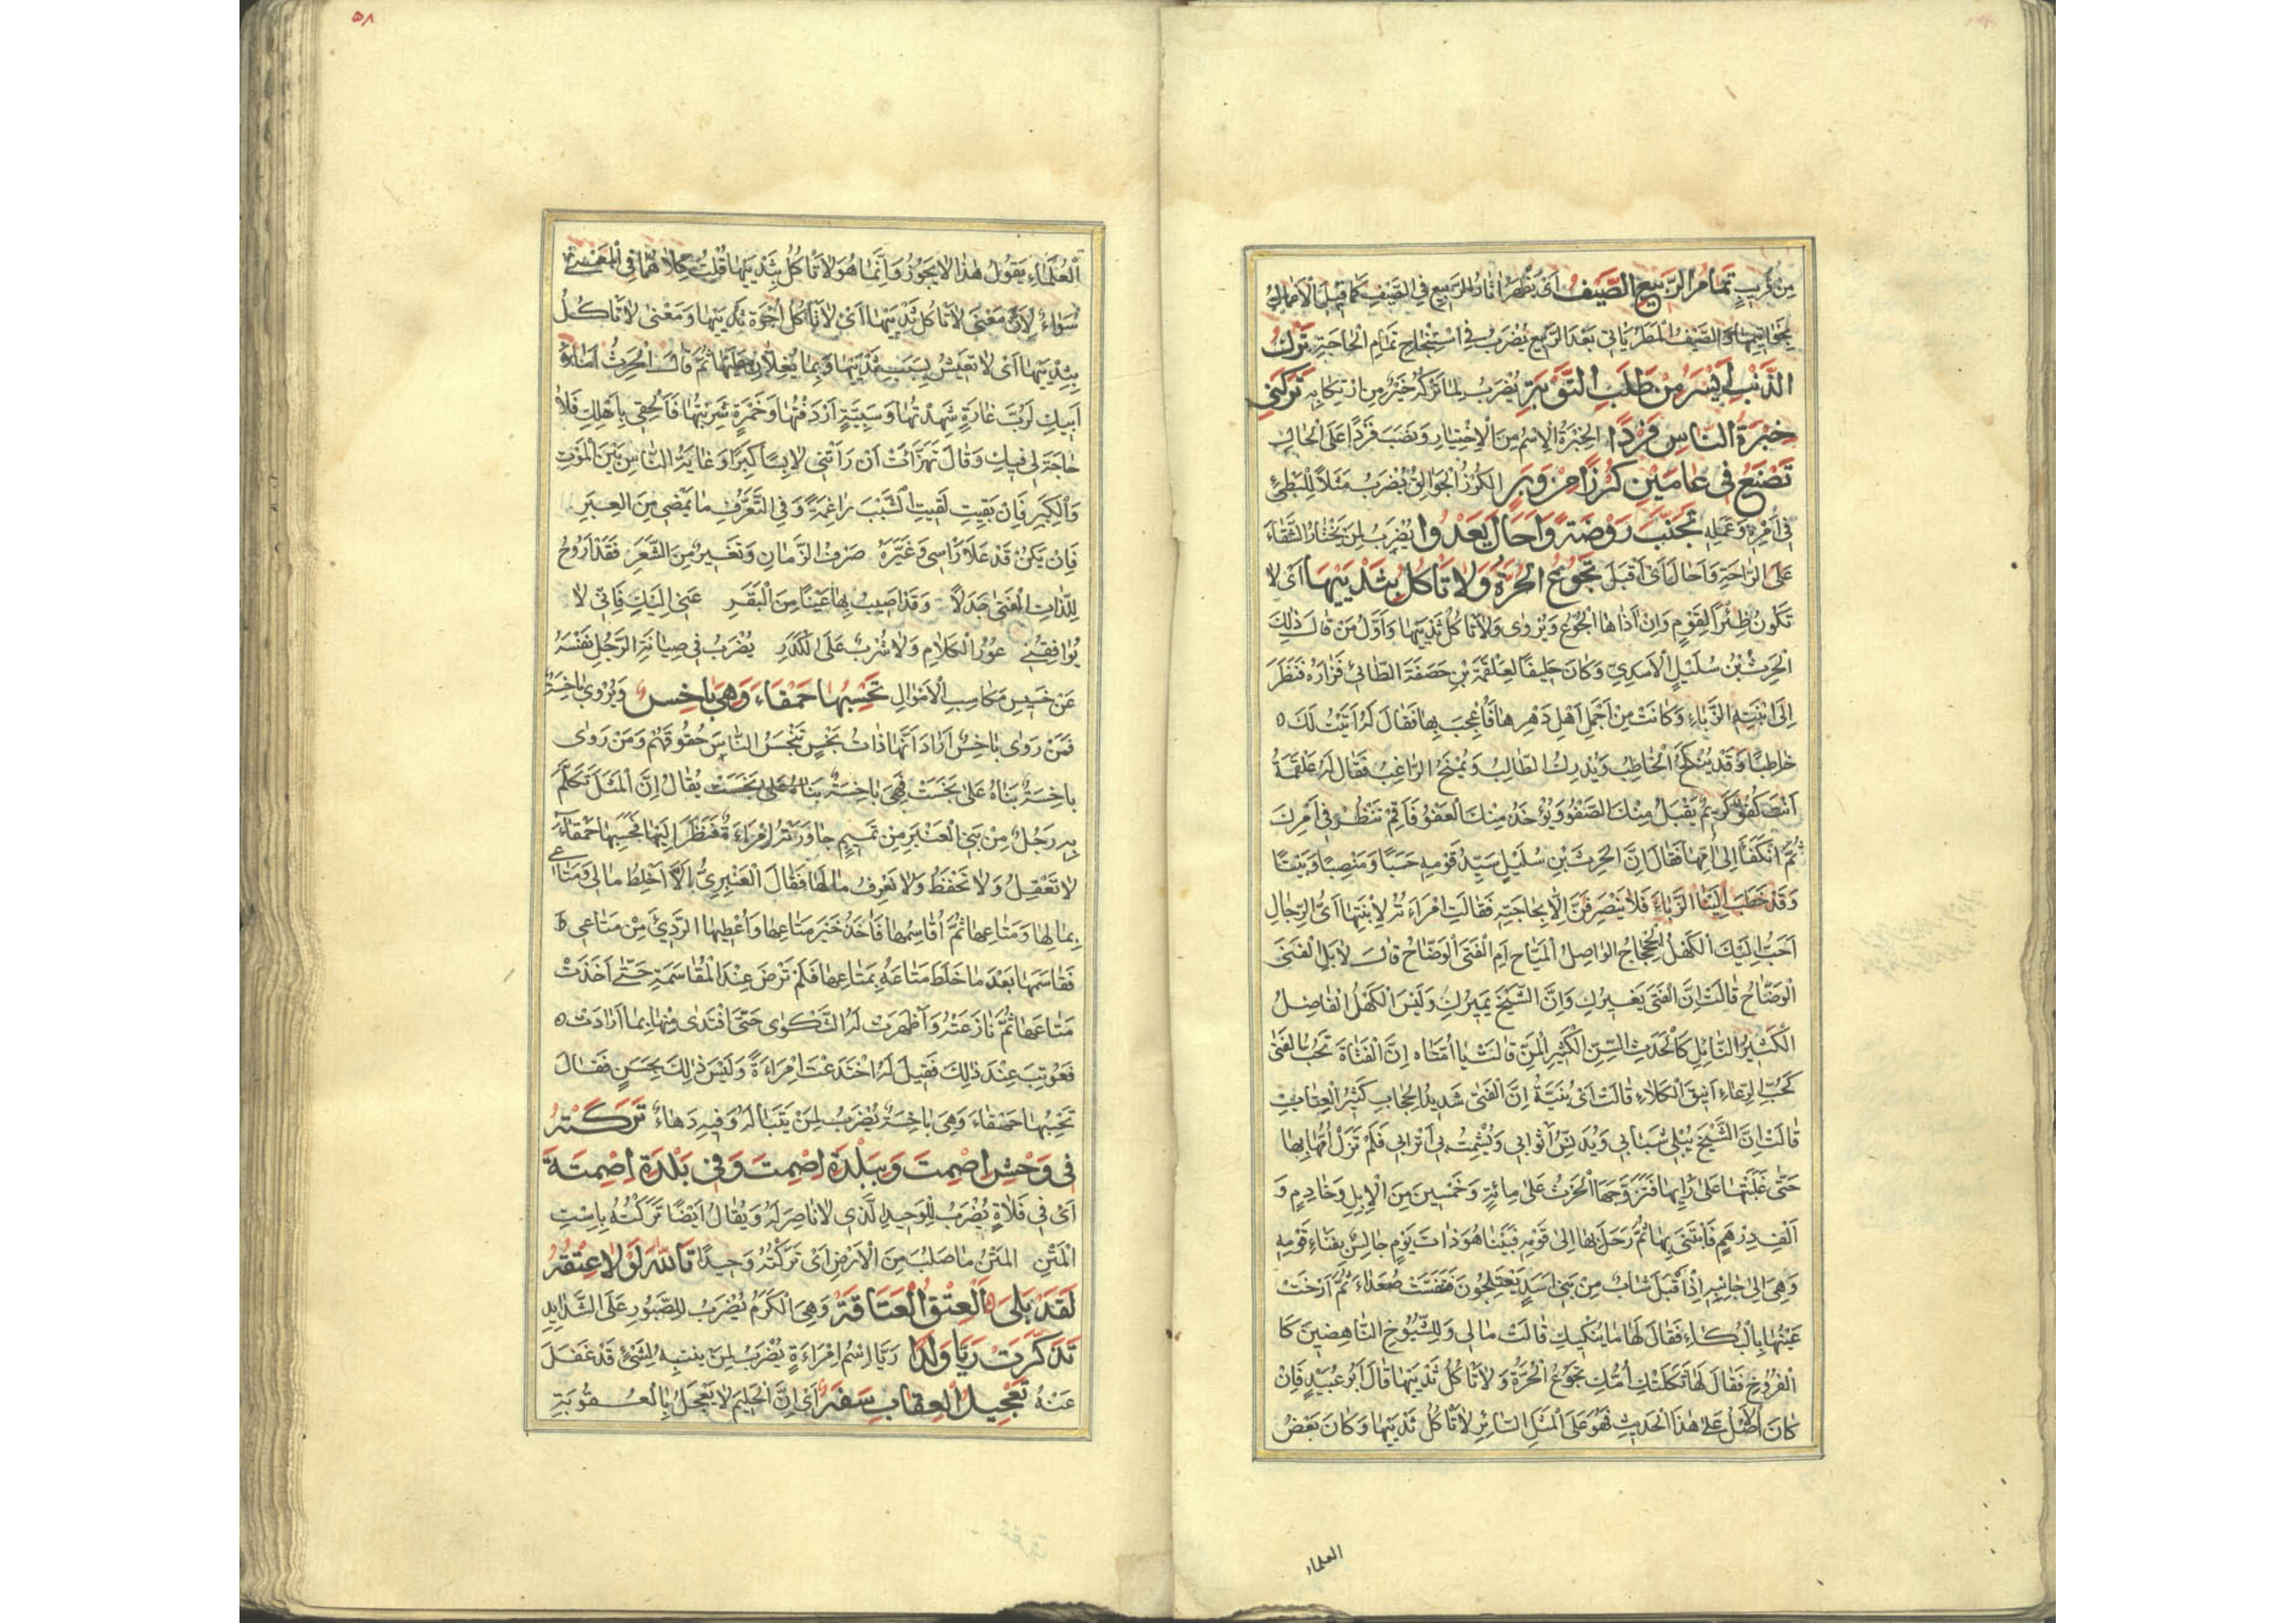 مِنْ كَرِيبٍ تَمَامُ الرَّبِيعِ الصَّيْفُ أَيْ يَظْهَرُ اٰثَارُ الرَّبِيعِ فِي الصَّيْفِ كَمَا قِيلَ الْاَعْمَالُ
بِخَوَاتِيمِهَا وَالصَّيْفُ الْمَطَرُ يَاتِي بَعْدَ الرَّبِيعِ يُضْرَبُ فِي اسْتِنْجَاحِ تَمَامِ الْحَاجَةِ تَرْكُ
الذَّنْبِ اَيْسَرُ مِنْ طَلَبِ التَّوْبَةِ يُضْرَبُ لِمَا تَرْكُهُ خَيْرٌ مِنِ ارْتِكَابِهِ تَرَكَتْنِي
خِبْرَةُ النَّاسِ فَرْدًا الْخِبْرَةُ الْاِسْمُ مِنَ الْاِخْتِيَارِ وَنَصَبَ فَرْدًا عَلَى الْحَالِ
تَصْنَعُ فِي عَامَيْنِ كُرْزًا مِنْ وَبَرٍ الكُرْزُ الْجُوَالِقُ يُضْرَبُ مَثَلًا لِلْبَطِئِ
فِي اَمْرِهِ وَعَمَلِهِ تَجَنَّبَ رَوْضَةً وَاَحَالَ يَعْدُوا يُضْرَبُ لِمَنْ يَخْتَارُ الشَّقَاءَ
عَلَى الرَّاحَةِ وَاَحَالَ اَيْ اَقْبَلَ تَجُوعُ الْحُرَّةُ وَلَا تَاكُلُ بِثَدْيَيْهَا اَيْ لَا
تَكُونُ ظِئْرًا لِقَوْمٍ وَاِنْ اٰذَاهَا الْجُوعُ وَيُرْوٰى وَلَا تَاكُلُ ثَدْيَيْهَا وَاَوَّلُ مَنْ قَالَ ذٰلِكَ
الْحَرِثُ بْنُ سُلَيْلٍ الْاَسَدِيّ وَكَانَ حَلِيفًا لِعَلْقَمَةَ بْنِ خَصَفَةَ الطَّائِيِّ فَزَارَهُ فَنَظَرَ
اِلَى ابْنَتِهِ الزَّبَّاءِ وَكَانَتْ مِنْ اَجْمَلِ اَهْلِ دَهْرِهَا فَاُعْجِبَ بِهَا فَقَالَ لَهُ اَتَيْتُ لَكَ
خَاطِبًا وَقَدْ يُنْكَحُ الْخَاطِبُ وَيُدْرِكُ الطَّالِبُ وَيُمْنَحُ الرَّاغِبُ فَقَالَ لَهُ عَلْقَمَةُ
اَنْتَ كُفُؤٌ كَرِيمٌ يُقْبَلُ مِنْكَ الصَّفْوُ وَيُؤْخَذُ مِنْكَ الْعَفْوُ فَاَقِمْ نَنْظُرْ فِي اَمْرِكَ
ثُمَّ انْكَفَأَ اِلَى اُمِّهَا فَقَالَ اِنَّ الْحَرِثَ بْنَ سُلَيْلٍ سَيِّدُ قَوْمِهِ حَسَبًا وَمَنْصِبًا وَبَيْتًا
وَقَدْ خَطَبَ اِلَيْنَا الزَّبَّاءَ فَلَا يَنْصَرِفَنَّ اِلَّا بِحَاجَتِهِ فَقَالَتِ امْرَاَتُهُ لِابْنَتِهَا اَيُّ الرِّجَالِ
اَحَبُّ اِلَيْكِ الْكَهْلُ الْجَحْجَاحُ الْوَاصِلُ الْمَيَّاحُ اَمِ الْفَتَى الْوَضَّاحُ قَالَتْ لَا بَلِ الْفَتَى
الْوَضَّاحُ قَالَتْ اِنَّ الْفَتَى يُغِيرُكِ وَاِنَّ الشَّيْخَ يَمِيرُكِ وَلَيْسَ الْكَهْلُ الْفَاضِلُ
الْكَثِيرُ النَّائِلِ كَالْحَدَثِ السِّنِّ الْكَثِيرِ الْمَنِّ قَالَتْ يَا اُمَّتَاه اِنَّ الْفَتَاةَ تُحِبُّ الْفَتَى
كَحُبِّ الرِّعَاءِ اَنِيقَ الْكَلَاءِ قَالَتْ اَيْ بُنَيَّةُ اِنَّ الْفَتَى شَدِيدُ الْحِجَابِ كَثِيرُ الْعِتَابِ
قَالَتْ اِنَّ الشَّيْخَ يُبْلِي شَبَابِي وَيُدَنِّسُ اَثْوَابِي وَيُشْمِتُ بِي اَتْرَابِي فَلَمْ تَزَلْ اُمُّهَا بِهَا
حَتَّى غَلَبَتْهَا عَلَى رَأْيِهَا فَتَزَوَّجَهَا الْحَرِثُ عَلَى مِائَةٍ وَخَمْسِينَ مِنَ الْاِبِلِ وَخَادِمٍ وَ
اَلْفِ دِرْهَمٍ فَابْتَنَى بِهَا ثُمَّ رَحَلَ بِهَا اِلَى قَوْمِهِ فَبَيْنَا هُوَ ذَاتَ يَوْمٍ جَالِسٌ بِفِنَاءِ قَوْمِهِ
وَهِيَ اِلَى جَانِبِهِ اِذْ اَقْبَلَ شَبَابٌ مِنْ بَنِي اَسَدٍ يَعْتَلِجُونَ فَتَنَفَّسَتْ صُعَدَاءَ ثُمَّ اَرْخَتْ
عَيْنَيْهَا بِالْبُكَاءِ فَقَالَ لَهَا مَا يُبْكِيكِ قَالَتْ مَا لِي وَلِلشُّيُوخِ النَّاهِضِينَ كَا
الْفُرُوخِ فَقَالَ لَهَا ثَكِلَتْكِ اُمُّكِ تَجُوعُ الْحُرَّةُ وَلَا تَاكُلُ ثَدْيَيْهَا قَالَ اَبُو عُبَيْدٍ فَاِنْ
كَانَ الْاَصْلُ عَلَى هٰذَا الْحَدِيثِ فَهُوَ عَلَى الْمَثَلِ السَّائِرِ لَا تَاكُلُ ثَدْيَيْهَا وَكَانَ بَعْضُ
العلماء
٥٨
الْعُلَمَاءِ يَقُولُ هٰذَا لَا يَجُوزُ وَاِنَّمَا هُوَ لَا تَاكُلُ بِثَدْيَيْهَا قُلْتُ كِلَاهُمَا فِي الْمَعْنَى
سَوَاءٌ لِاَنَّ مَعْنَى لَا تَاكُلُ ثَدْيَيْهَا اَيْ لَا تَاكُلُ اُجْرَةَ ثَدْيَيْهَا وَمَعْنَى لَا تَاكُلُ
بِثَدْيَيْهَا اَيْ لَا تَعِيشُ بِسَبَبِ ثَدْيَيْهَا وَبِمَا يُغِلَّانِ عَلَيْهَا ثُمَّ قَالَ الْحَرِثُ اَمَا وَ
اَبِيكِ لَرُبَّ غَارَةٍ شَهِدْتُهَا وَسَبِيَّةٍ اَرْدَفْتُهَا وَخَمْرَةٍ شَرِبْتُهَا فَالْحَقِي بِاَهْلِكِ فَلَا
حَاجَةَ لِي فِيكِ وَقَالَ تَهَزَّأَتْ اَنْ رَاَتْنِي لَابِسًا كِبَرًا وَغَايَةُ النَّاسِ بَيْنَ الْمَوْتِ
وَالْكِبَرِ فَاِنْ بَقِيتِ لَقِيتِ الشَّيْبَ رَاغِمَةً وَفِي التَّعَرُّفِ مَا يَمْضِي مِنَ الْعِبَرِ
فَاِنْ يَكُنْ قَدْ عَلَا رَاسِي وَغَيَّرَهُ صَرْفُ الزَّمَانِ وَتَغْيِيرٌ مِنَ الشَّعَرِ فَقَدْ اَرُوحُ
لِلَذَّاتِ الْفَتَى جَذِلًا وَقَدْ اُصِيبُ بِهَا عَيْنًا مِنَ الْبَقَرِ عَنِّي اِلَيْكِ فَاِنِّي لَا
يُوَافِقُنِي عُورُ الْكَلَامِ وَلَا شُرْبٌ عَلَى الْكَدَرِ يُضْرَبُ فِي صِيَانَةِ الرَّجُلِ نَفْسَهُ
عَنْ خَسِيسِ مَكَاسِبِ الْاَمْوَالِ تَحْسَبُهَا حَمْقَاءَ وَهِيَ بَاخِسٌ وَيُرْوٰى بَاخِسَةٌ
فَمَنْ رَوٰى بَاخِسٌ اَرَادَ اَنَّهَا ذَاتُ بَخْسٍ تَبْخَسُ النَّاسَ حُقُوقَهُمْ وَمَنْ رَوٰى
بَاخِسَةٌ بَنَاهُ عَلَى بَخَسَتْ فَهِيَ بَاخِسَةٌ بَنَاهُ عَلَى بَخَسَتْ يُقَالُ اِنَّ الْمَثَلَ تَكَلَّمَ
بِهِ رَجُلٌ مِنْ بَنِي الْعَنْبَرِ مِنْ تَمِيمٍ جَاوَرَتْهُ امْرَاَةٌ فَنَظَرَ اِلَيْهَا فَحَسِبَهَا حَمْقَاءَ
لَا تَعْقِلُ وَلَا تَحْفَظُ وَلَا تَعْرِفُ مَالَهَا فَقَالَ الْعَنْبَرِيُّ اَلَا اَخْلِطُ مَالِي وَمَتَاعِي
بِمَالِهَا وَمَتَاعِهَا ثُمَّ اُقَاسِمُهَا فَاٰخُذُ خَيْرَ مَتَاعِهَا وَاُعْطِيهَا الرَّدِيءَ مِنْ مَتَاعِي
فَقَاسَمَهَا بَعْدَ مَا خَلَطَ مَتَاعَهُ بِمَتَاعِهَا فَلَمْ تَرْضَ عِنْدَ الْمُقَاسَمَةِ حَتَّى اَخَذَتْ
مَتَاعَهَا ثُمَّ نَازَعَتْهُ وَاَظْهَرَتْ لَهُ الشَّكْوٰى حَتَّى افْتَدٰى مِنْهَا بِمَا اَرَادَتْ
فَعُوتِبَ عِنْدَ ذٰلِكَ فَقِيلَ لَهُ اخْتَدَعْتَ امْرَاَةً وَلَيْسَ ذٰلِكَ بِحَسَنٍ فَقَالَ
تَحْسَبُهَا حَمْقَاءَ وَهِيَ بَاخِسَةٌ يُضْرَبُ لِمَنْ يَتَبَالَهُ وَفِيهِ دَهَاءٌ تَرَكْتُهُ
فِي وَحْشِ اِصْمِتَ وَبِبَلْدَةِ اِصْمِتَ وَفِي بَلْدَةِ اِصْمِتَةَ
اَيْ فِي فَلَاةٍ يُضْرَبُ لِلْوَحِيدِ الَّذِي لَا نَاصِرَ لَهُ وَيُقَالُ اَيْضًا تَرَكْتُهُ بِاسْتِ
الْمَتْنِ الْمَتْنُ مَا صَلُبَ مِنَ الْاَرْضِ اَيْ تَرَكْتُهُ وَحِيدًا تَاللّٰهِ لَوْ لَا عِتْقُهُ
لَقَدْ بَلِيَ الْعِتْقُ الْعَتَاقَةُ وَهِيَ الْكَرَمُ يُضْرَبُ لِلصَّبُورِ عَلَى الشَّدَايِدِ
تَذَكَّرَتْ رَيَّا وَلَدًا رَيَّا اسْمُ امْرَاَةٍ يُضْرَبُ لِمَنْ يَنْتَبِهُ لِشَيْءٍ قَدْ غَفَلَ
عَنْهُ تَعْجِيلُ الْعِقَابِ سَفَهٌ اَيْ اِنَّ الْحَلِيمَ لَا يَعْجَلُ بِالْعُقُوبَةِ